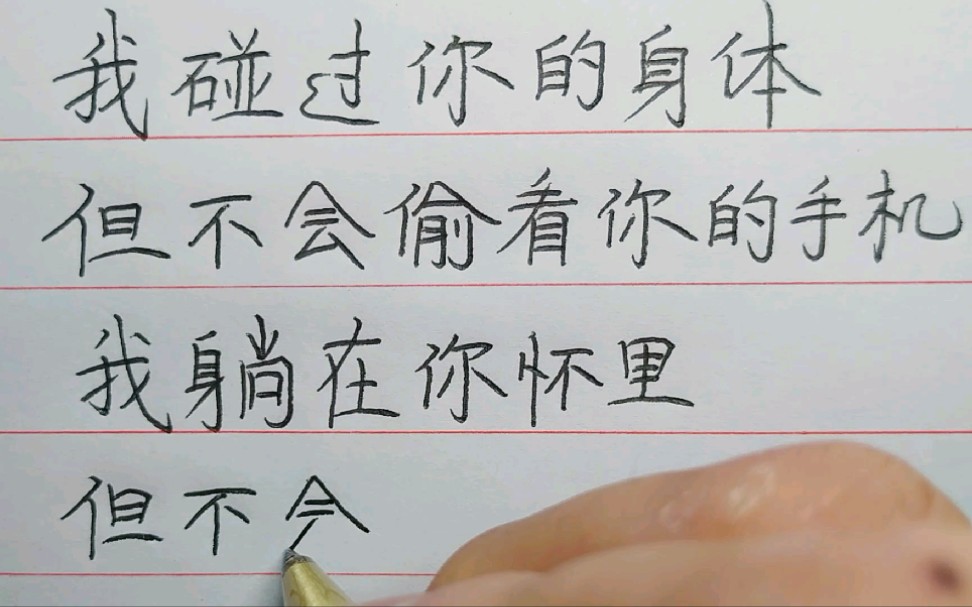 我碰过你的身体
但不会偷看你的手机
我躺在你怀里
但不会